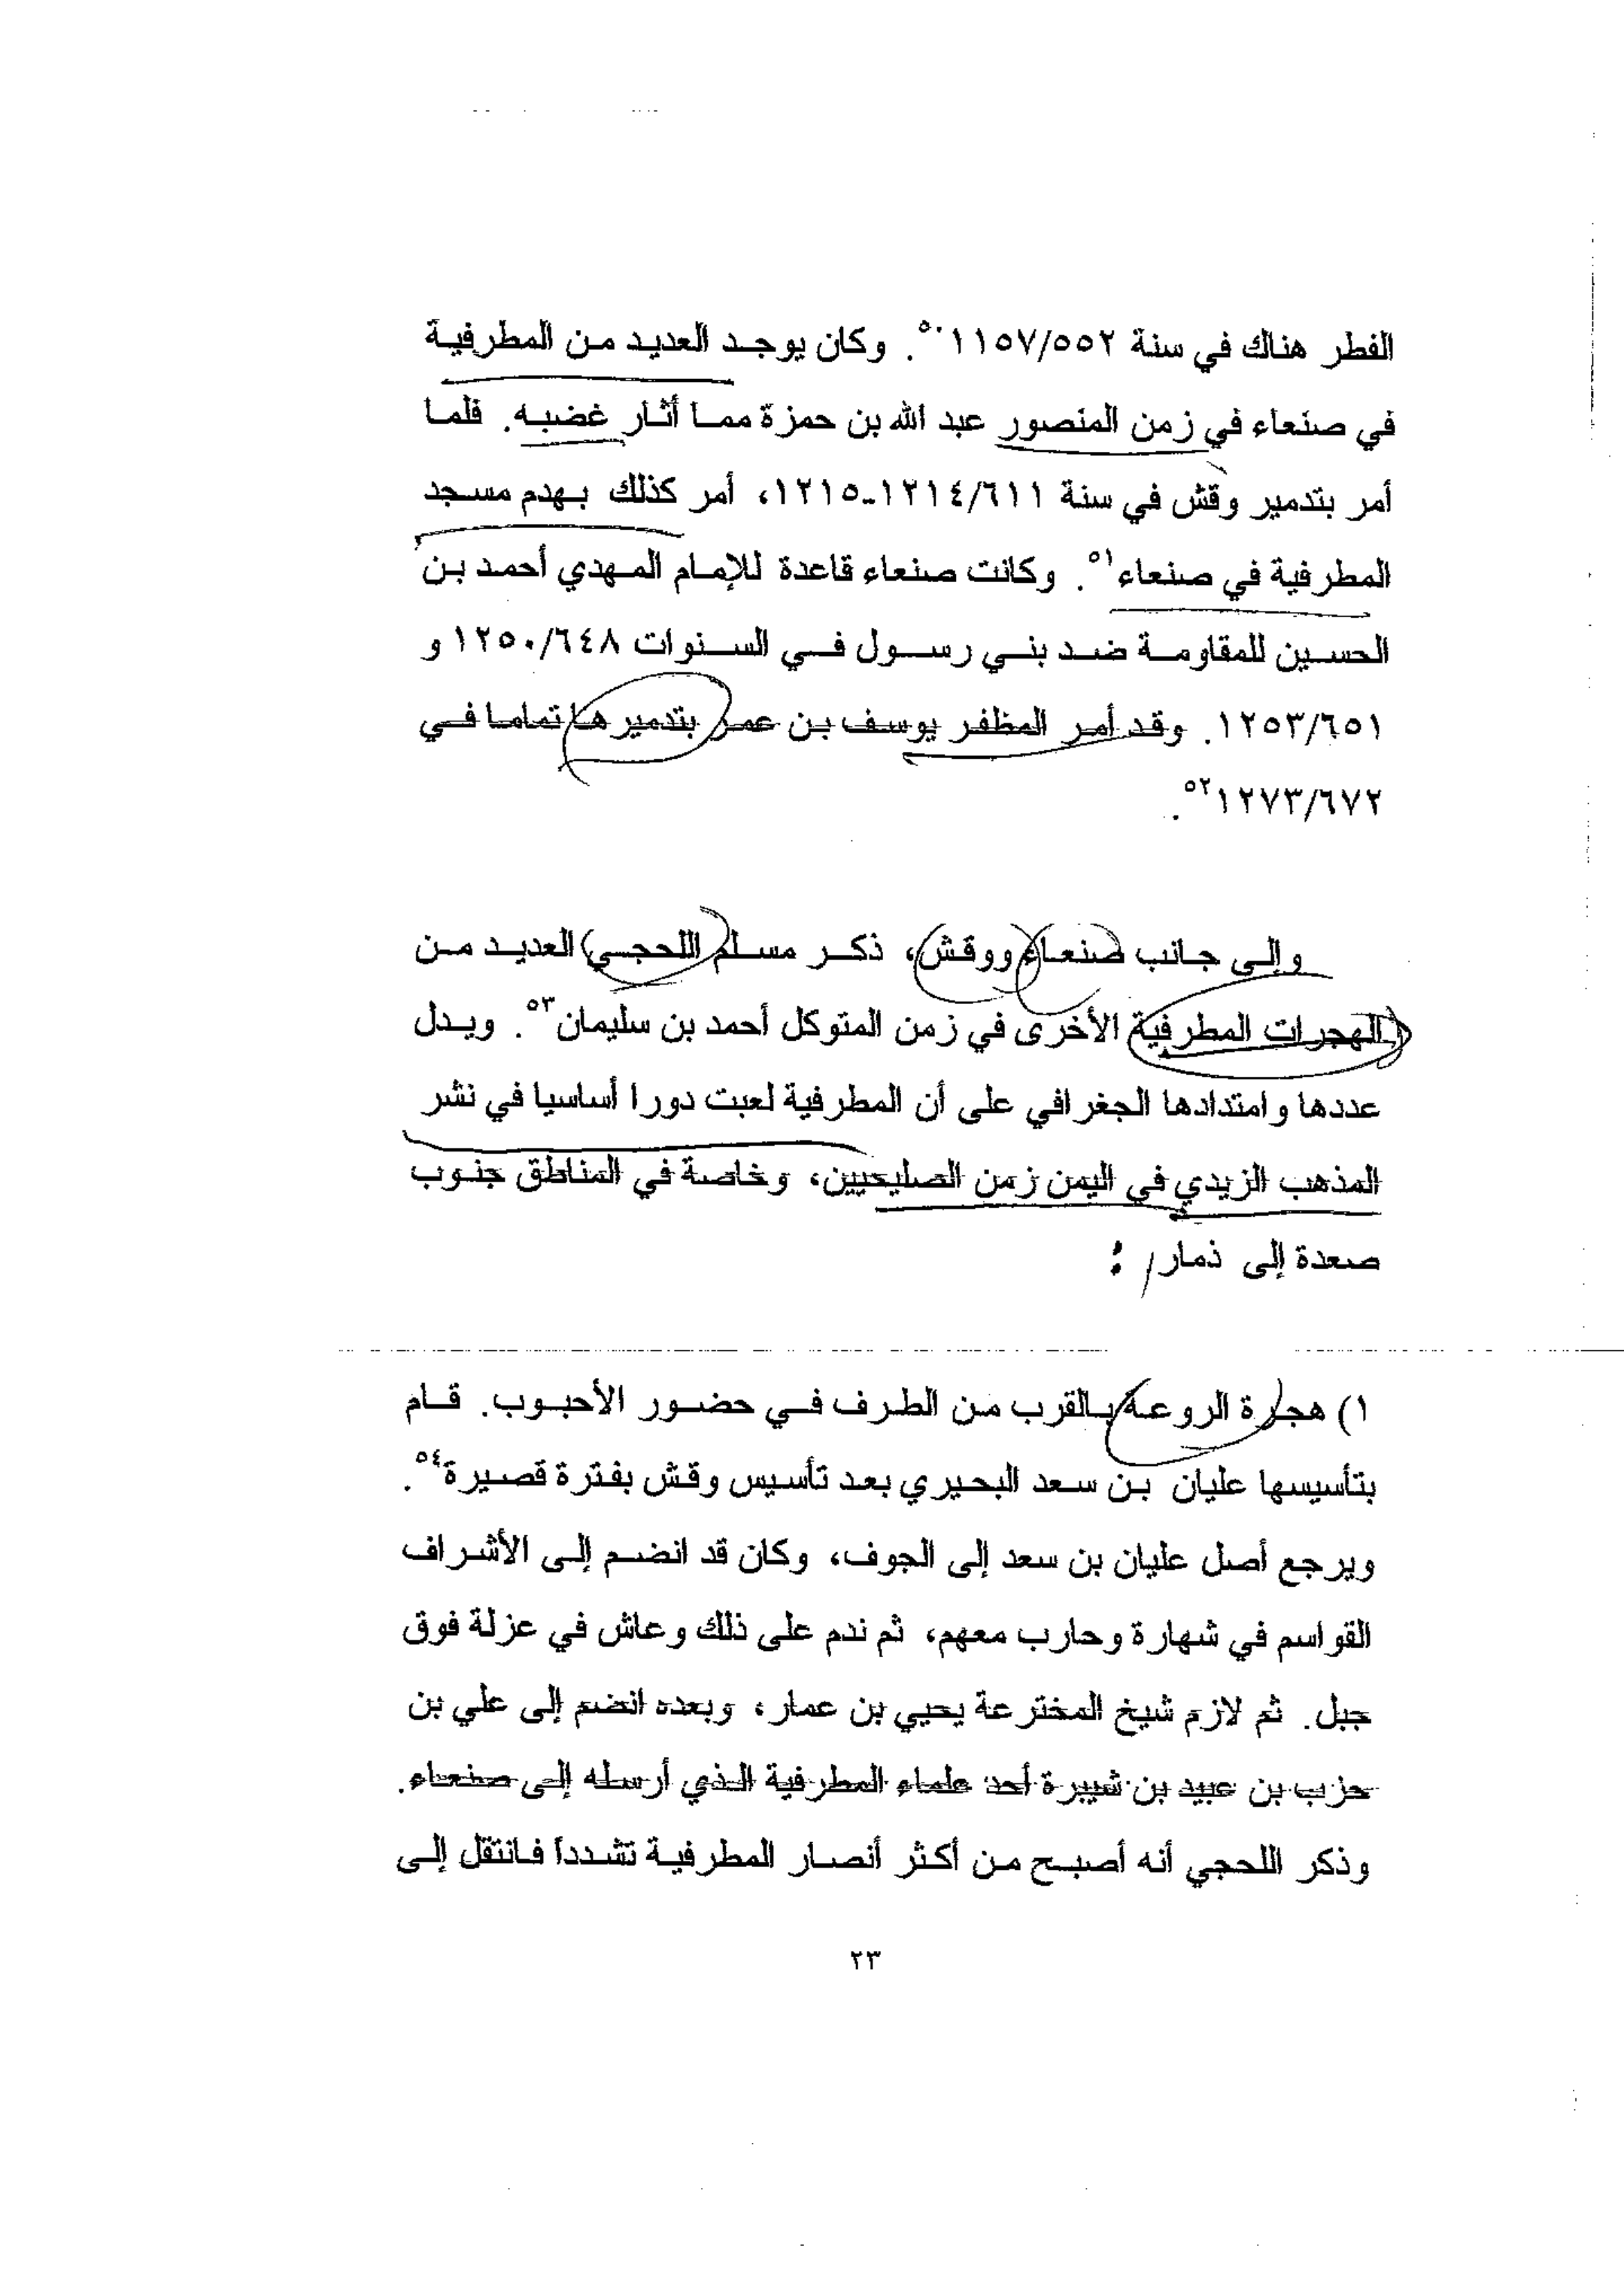 الفطر هناك في سنة ١١٥٧/٥٥٢ ٥٠. وكان يوجد العديد من المطرفية
في صنعاء في زمن المنصور عبد الله بن حمزة مما أثار غضبه. فلما
أمر بتدمير وقش في سنة ١٢١٤/٦١١-١٢١٥، أمر كذلك بهدم مسجد
المطرفية في صنعاء٥١. وكانت صنعاء قاعدة للإمام المهدي أحمد بن
الحسين للمقاومة ضد بني رسول في السنوات ١٢٥٠/٦٤٨ و
١٢٥٣/٦٥١. وقد أمر المظفر يوسف بن عمر بتدميرها تماما في
١٢٧٣/٦٧٢ ٥٢.
وإلى جانب صنعاء ووقش، ذكر مسلم اللحجي العديد من
الهجرات المطرفية الأخرى في زمن المتوكل أحمد بن سليمان٥٣. ويدل
عددها وامتدادها الجغرافي على أن المطرفية لعبت دورا أساسيا في نشر
المذهب الزيدي في اليمن زمن الصليحيين، وخاصة في المناطق جنوب
صعدة إلى ذمار:
١) هجرة الروعة بالقرب من الطرف في حضور الأحبوب. قام
بتأسيسها عليان بن سعد البحيري بعد تأسيس وقش بفترة قصيرة٥٤.
ويرجع أصل عليان بن سعد إلى الجوف، وكان قد انضم إلى الأشراف
القواسم في شهارة وحارب معهم، ثم ندم على ذلك وعاش في عزلة فوق
جبل. ثم لازم شيخ المخترعة يحيي بن عمار، وبعده انضم إلى علي بن
حزب بن عبيد بن شبيرة أحد علماء المطرفية الذي أرسله إلى صنعاء.
وذكر اللحجي أنه أصبح من أكثر أنصار المطرفية تشدداً فانتقل إلى
٢٣